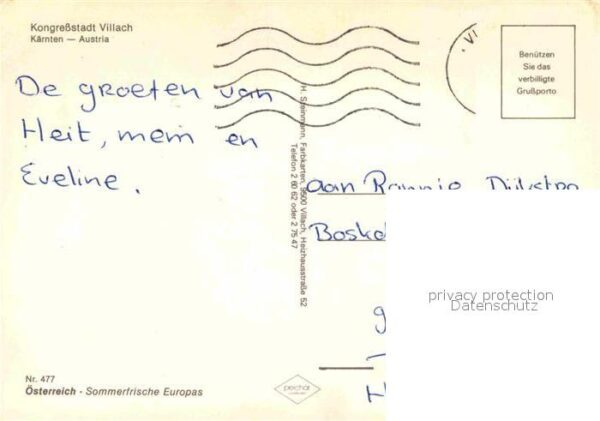 Kongreßstadt Villach
Kärnten — Austria
VI
Benützen
Sie das
verbilligte
Grußporto
De groeten van
Heit, mem en
Eveline.
H. Steinmann, Farbkarten, 9500 Villach, Heizhausstraße 52
Telefon 2 60 62 oder 2 75 47
aan Ronnie Dijkstra
privacy protection
Datenschutz
Nr. 477
Österreich - Sommerfrische Europas